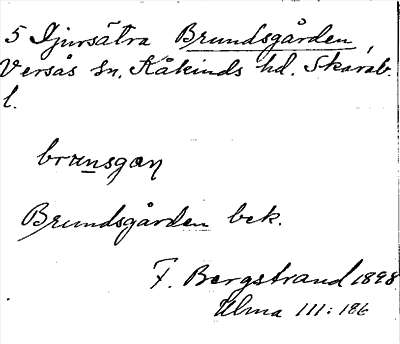 5 Djursätra Brundsgården,
Versås sn. Kåkinds hd. Skarab.
l.
brunsgan
Brundsgården bek.
F. Bergstrand 1898
Ulma 111:186